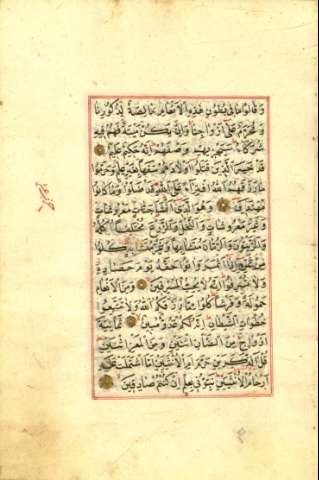 وَقَالُوا مَا فِي بُطُونِ هَذِهِ الْأَنْعَامِ خَالِصَةٌ لِذُكُورِنَا
وَمُحَرَّمٌ عَلَى أَزْوَاجِنَا وَإِنْ يَكُنْ مَيْتَةً فَهُمْ فِيهِ
شُرَكَاءُ سَيَجْزِيهِمْ وَصْفَهُمْ إِنَّهُ حَكِيمٌ عَلِيمٌ
قَدْ خَسِرَ الَّذِينَ قَتَلُوا أَوْلَادَهُمْ سَفَهًا بِغَيْرِ عِلْمٍ وَحَرَّمُوا
مَا رَزَقَهُمُ اللَّهُ افْتِرَاءً عَلَى اللَّهِ قَدْ ضَلُّوا وَمَا كَانُوا
مُهْتَدِينَ وَهُوَ الَّذِي أَنْشَأَ جَنَّاتٍ مَعْرُوشَاتٍ
وَغَيْرَ مَعْرُوشَاتٍ وَالنَّخْلَ وَالزَّرْعَ مُخْتَلِفًا أُكُلُهُ
وَالزَّيْتُونَ وَالرُّمَّانَ مُتَشَابِهًا وَغَيْرَ مُتَشَابِهٍ كُلُوا
مِنْ ثَمَرِهِ إِذَا أَثْمَرَ وَآتُوا حَقَّهُ يَوْمَ حَصَادِهِ
وَلَا تُسْرِفُوا إِنَّهُ لَا يُحِبُّ الْمُسْرِفِينَ وَمِنَ الْأَنْعَامِ
حَمُولَةً وَفَرْشًا كُلُوا مِمَّا رَزَقَكُمُ اللَّهُ وَلَا تَتَّبِعُوا
خُطُوَاتِ الشَّيْطَانِ إِنَّهُ لَكُمْ عَدُوٌّ مُبِينٌ ثَمَانِيَةَ
أَزْوَاجٍ مِنَ الضَّأْنِ اثْنَيْنِ وَمِنَ الْمَعْزِ اثْنَيْنِ
قُلْ آلذَّكَرَيْنِ حَرَّمَ أَمِ الْأُنْثَيَيْنِ أَمَّا اشْتَمَلَتْ عَلَيْهِ
أَرْحَامُ الْأُنْثَيَيْنِ نَبِّئُونِي بِعِلْمٍ إِنْ كُنْتُمْ صَادِقِينَ